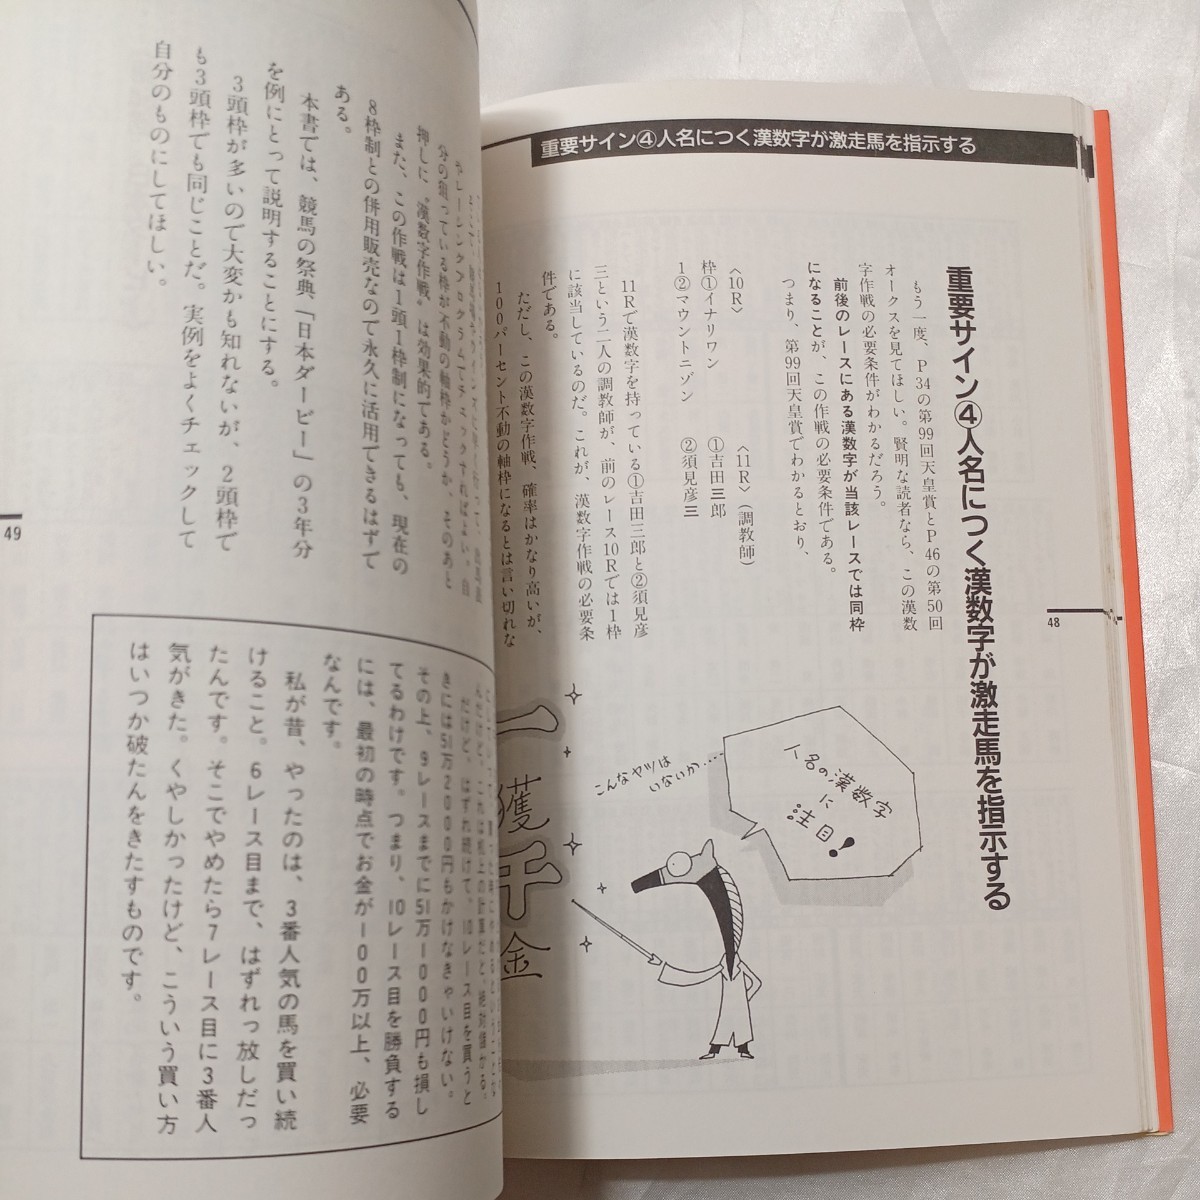 重要サイン④人名につく漢数字が激走馬を指示する
重要サイン④人名につく漢数字が激走馬を指示する
もう一度、P34の第99回天皇賞とP46の第50回
オークスを見てほしい。賢明な読者なら、この漢数
字作戦の必要条件がわかるだろう。
前後のレースにある漢数字が当該レースでは同枠
になることが、この作戦の必要条件である。
つまり、第99回天皇賞でわかるとおり、
〈10R〉 〈11R〉(調教師)
枠①イナリワン ①吉田三郎
1②マウントニゾン ②須見彦三
11Rで漢数字を持っている①吉田三郎と②須見彦
三という二人の調教師が、前のレース10Rでは1枠
に該当しているのだ。これが、漢数字作戦の必要条
件である。
ただし、この漢数字作戦、確率はかなり高いが、
100パーセント不動の軸枠になるとは言い切れな
人名の漢数字
に
注目!
こんなヤツは
いないか……
一獲千金
48
やレーシングプログラムでチェックすればよい。自
分の狙っている枠が不動の軸枠かどうか、そのあと
押しに"漢数字作戦"は効果的である。
また、この作戦は1頭1枠制になっても、現在の
8枠制との併用販売なので永久に活用できるはずで
ある。
本書では、競馬の祭典、「日本ダービー」の3年分
を例にとって説明することにする。
3頭枠が多いので大変かも知れないが、2頭枠で
も3頭枠でも同じことだ。実例をよくチェックして
自分のものにしてほしい。
んだけど、これは机上の計算だと、絶対儲かる。
だけど、はずれ続けて、10レース目を買うと
きには51万2000円もかけなきゃいけない。
その上、9レースまでに51万1000円も損し
てるわけです。つまり、10レース目を勝負する
には、最初の時点でお金が100万以上、必要
なんです。
私が昔、やったのは、3番人気の馬を買い続
けること。6レース目まで、はずれっ放しだっ
たんです。そこでやめたら7レース目に3番人
気がきた。くやしかったけど、こういう買い方
はいつか破たんをきたすものです。
49